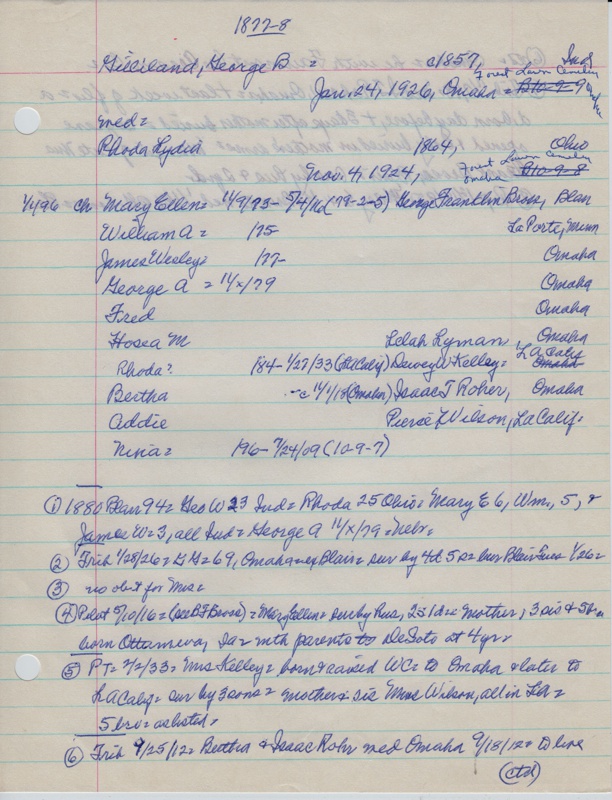 1877-8
Gilliland, George B = c1857, Ind
Forest Lawn Cemetery
Jan. 24, 1926, Omaha = B10-9-9
med=
Rhoda Lydia 1864, Ohio
Forest Lawn Cemetery
Nov. 4, 1924, Omaha B10-9-8
ch Mary Ellen= 11/7/73- 5/4/16 (79-2-5) George Franklin Brose, Blair
William A = /75- La Porte, Minn
James Wesley= /77- Omaha
George A = 11/x/79 Omaha
Fred Omaha
Hosea M Lelah Lyman Omaha
LA Calif
Rhoda? /84- 1/27/33 (LA Calif) Dewey W Kelley= Omaha
Bertha (Omaha) Isaac T Rohr, Omaha
Addie Pierce Y Wilson, LA Calif.
Nina= /96- 7/24/09 (12-9-7)
① 1880 Blair 94= Geo W 23 Ind= Rhoda 25 Ohio= Mary E 6, Wm, 5, &
James W=3, all Ind= George A 11/x/79= Nebr=
② Trib 1/28/26= 69, Omaha= ex Blair= sur by 4d 5s= bur Blair Tues 1/26=
③ no obit for Mrs=
④ Pilot 5/10/16= (see B F Brose)= Mary Ellen= sur by hus, 2s 1d= mother, 3 sis & 5 bro
born Ottumwa, Ia= mth parents to DeSoto at 4 yrs
⑤ PT= 2/2/33= Mrs Kelley= born & raised WC= to Omaha & later to
LA Calif= sur by 3 sons= mother & sis Mrs Wilson, all in LA=
5 bro= as listed=
⑥ Trib 9/25/12= Bertha & Isaac Rohr med Omaha 9/18/12= to live
(ctd)